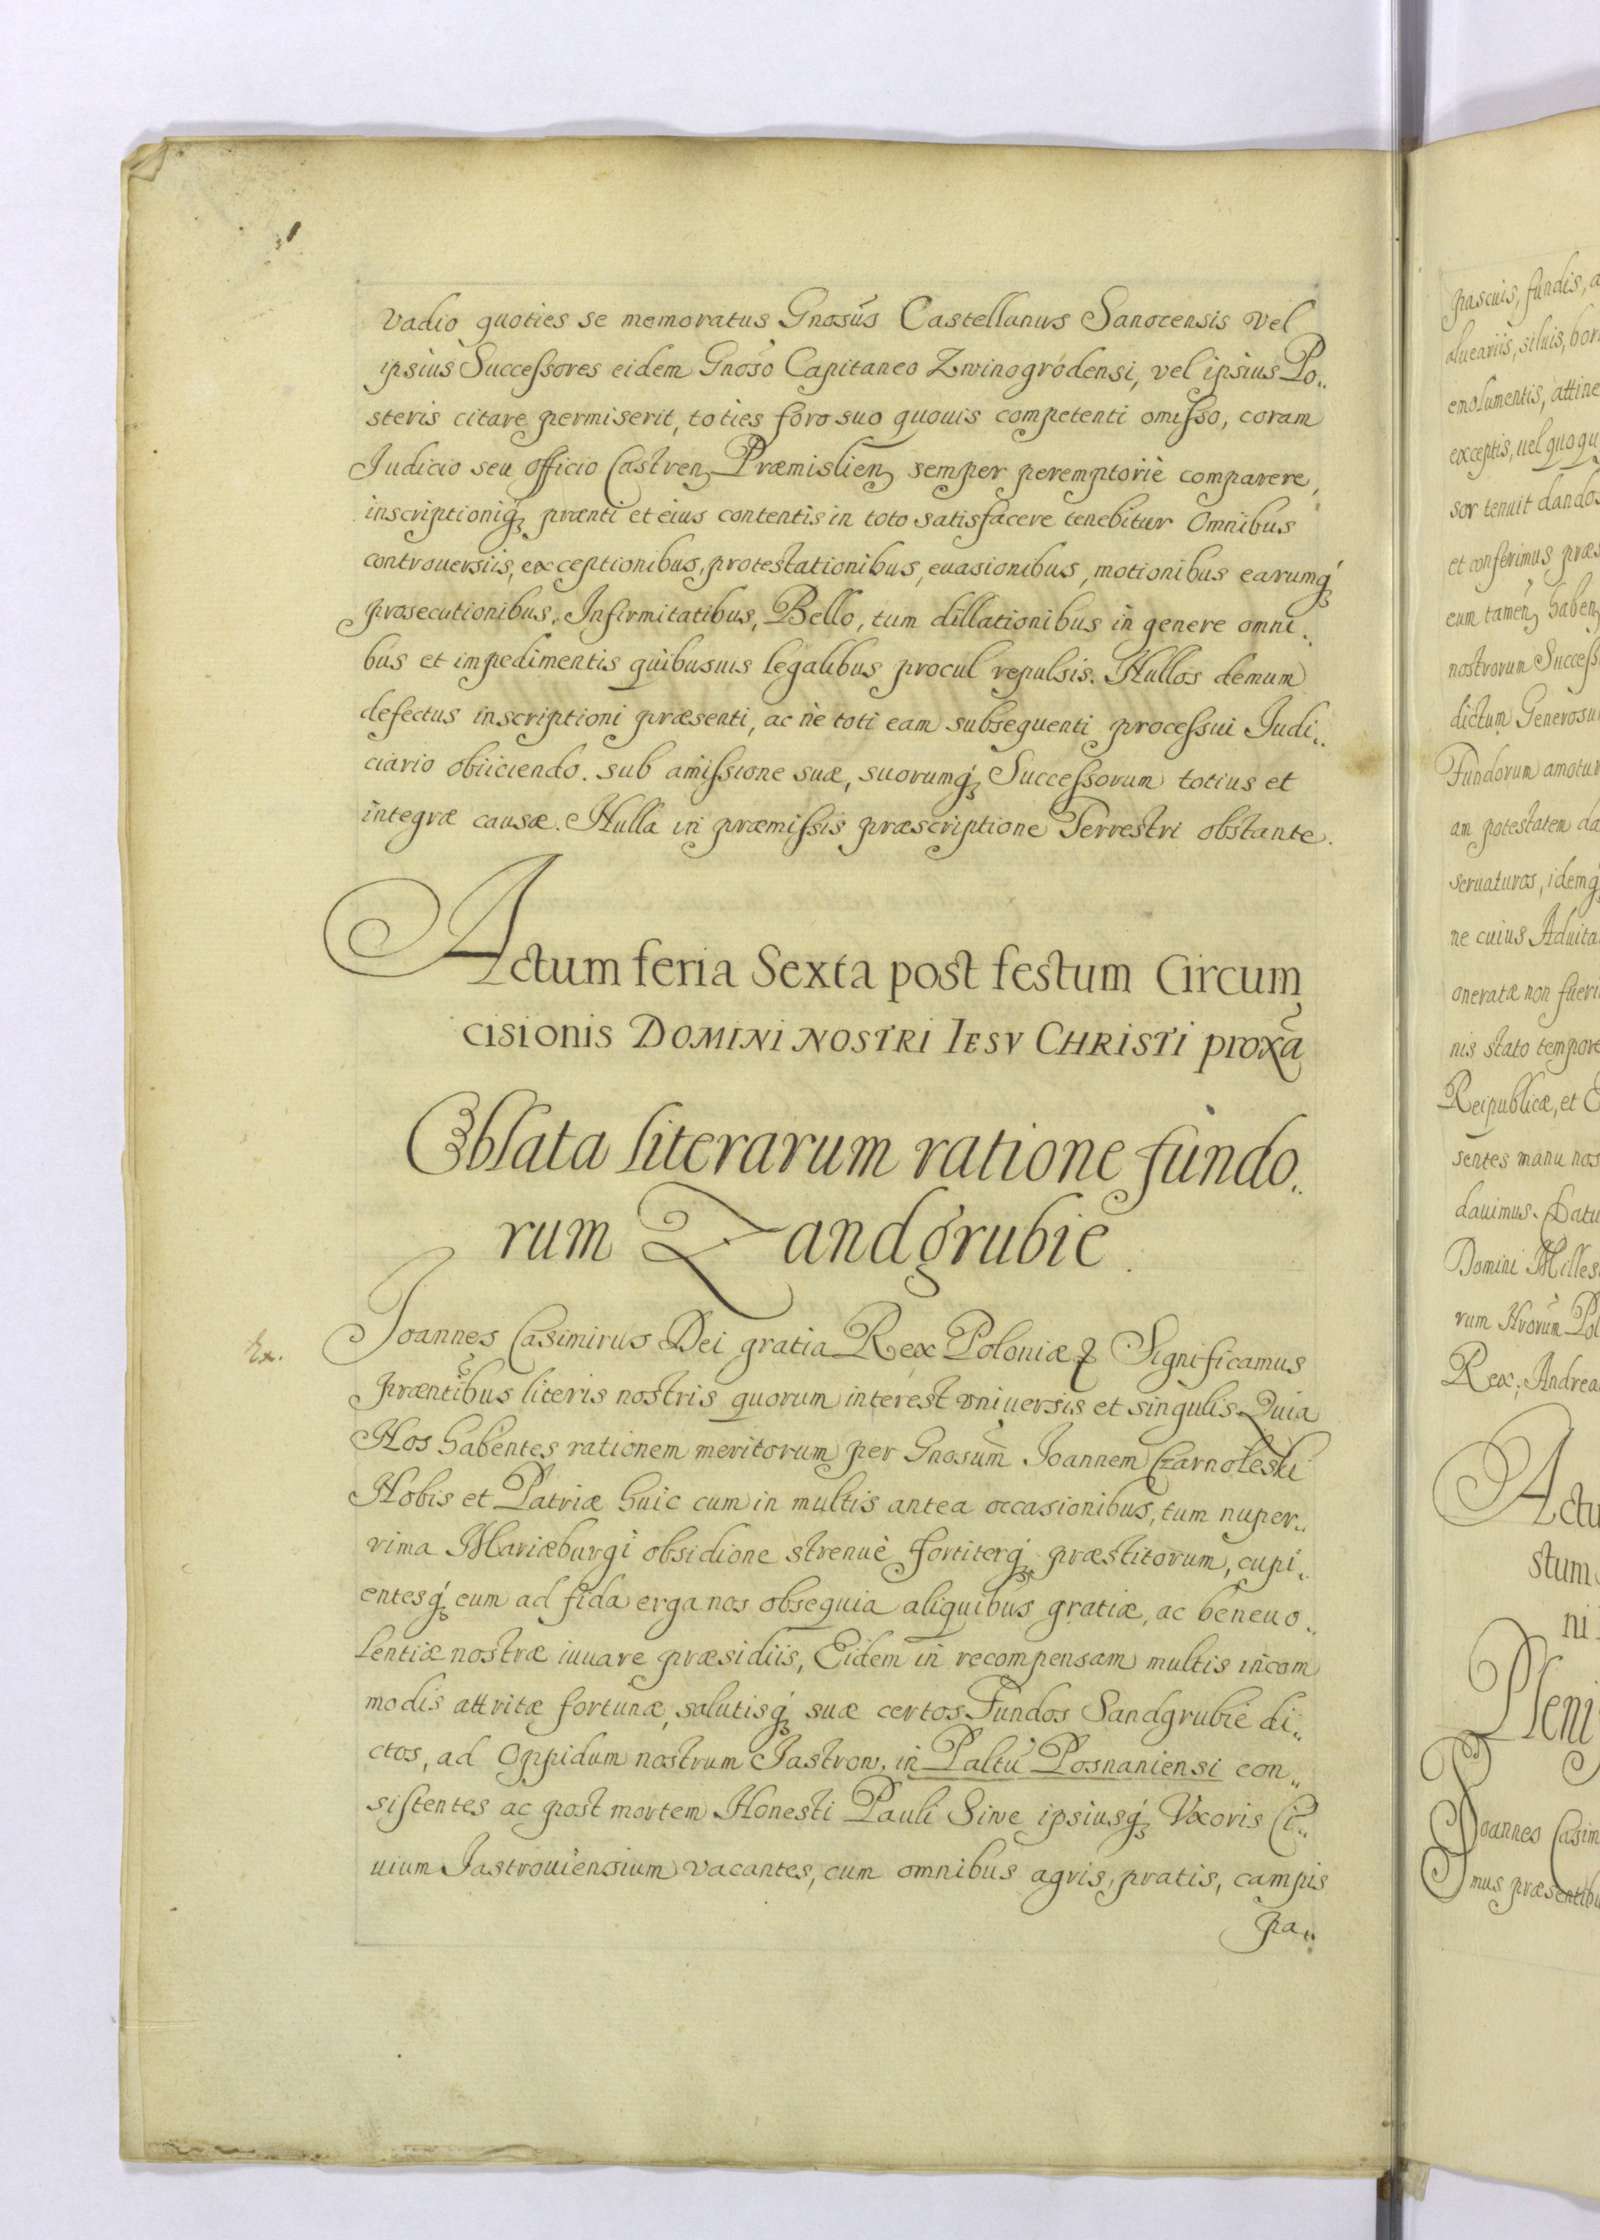 Vadio quoties se memoratus Gnosus Castellanus Sanocensis vel
ipsius Successores eidem Gnoso Capitaneo Zwinogrodensi, vel ipsius Po„
steris citare permiserit, toties foro suo quouis competenti omisso, coram
Iudicio seu officio Castren Præmislien semper peremptoriè comparere,
inscriptioniq; prænti et eius contentis in toto satisfacere tenebitur Omnibus
controuersiis, exceptionibus, protestationibus, euasionibus, motionibus earumq;
prosecutionibus, Infirmitatibus, Bello, tum dillationibus in genere omni„
bus et impedimentis quibusuis legalibus procul repulsis. Nullos demum
defectus inscriptioni præsenti, ac nè toti eam subsequenti processui Iudi„
ciario obiiciendo. sub amissione suæ, suorumq; Successorum totius et
integræ causæ. Nulla in præmissis præscriptione Terrestri obstante.
Actum feria Sexta post festum Circum
cisionis DOMINI NOSTRI IESV CHRISTI proxa
Oblata literarum ratione fundo„
rum Zandgrubie
Ex.
Ioannes Casimirus Dei gratia Rex Poloniæ & Significamus
præntibus literis nostris quorum interest vniuersis et singulis Quia
Nos habentes rationem meritorum per Gnosum Ioannem Czarnoleski
Nobis et Patriæ huic cum in multis antea occasionibus, tum nuper„
rima Mariæburgi obsidione strenuè fortiterq; præstitorum, cupi„
entesq; eum ad fida erga nos obsequia aliquibus gratiæ, ac beneuo„
lentiæ nostræ iuuare præsidiis, Eidem in recompensam multis incom
modis attritæ fortunæ, salutisq; suæ certos Fundos Sandgrubie di„
ctos, ad Oppidum nostrum Jastrow, in Paltu Posnaniensi con„
sistentes ac post mortem Honesti Pauli Siwe ipsiusq; Vxoris Ci„
uium Jastrouiensium vacantes, cum omnibus agris, pratis, campis
pa„
pascuis, fundis,
alueariis, siluis,
emolumentis,
exceptis, uel
sor tenuit dandos
et conferimus
eum tamen haben
nostrorum
dictum
Fundorum
am potestatem
seruaturos, idemq;
ne cuius
oneratæ non
nis stato tempore
Reipublicæ, et
sentes manu
dauimus.
Domini
rum
Rex,
stum
ni
Pleni
Ioannes
mus